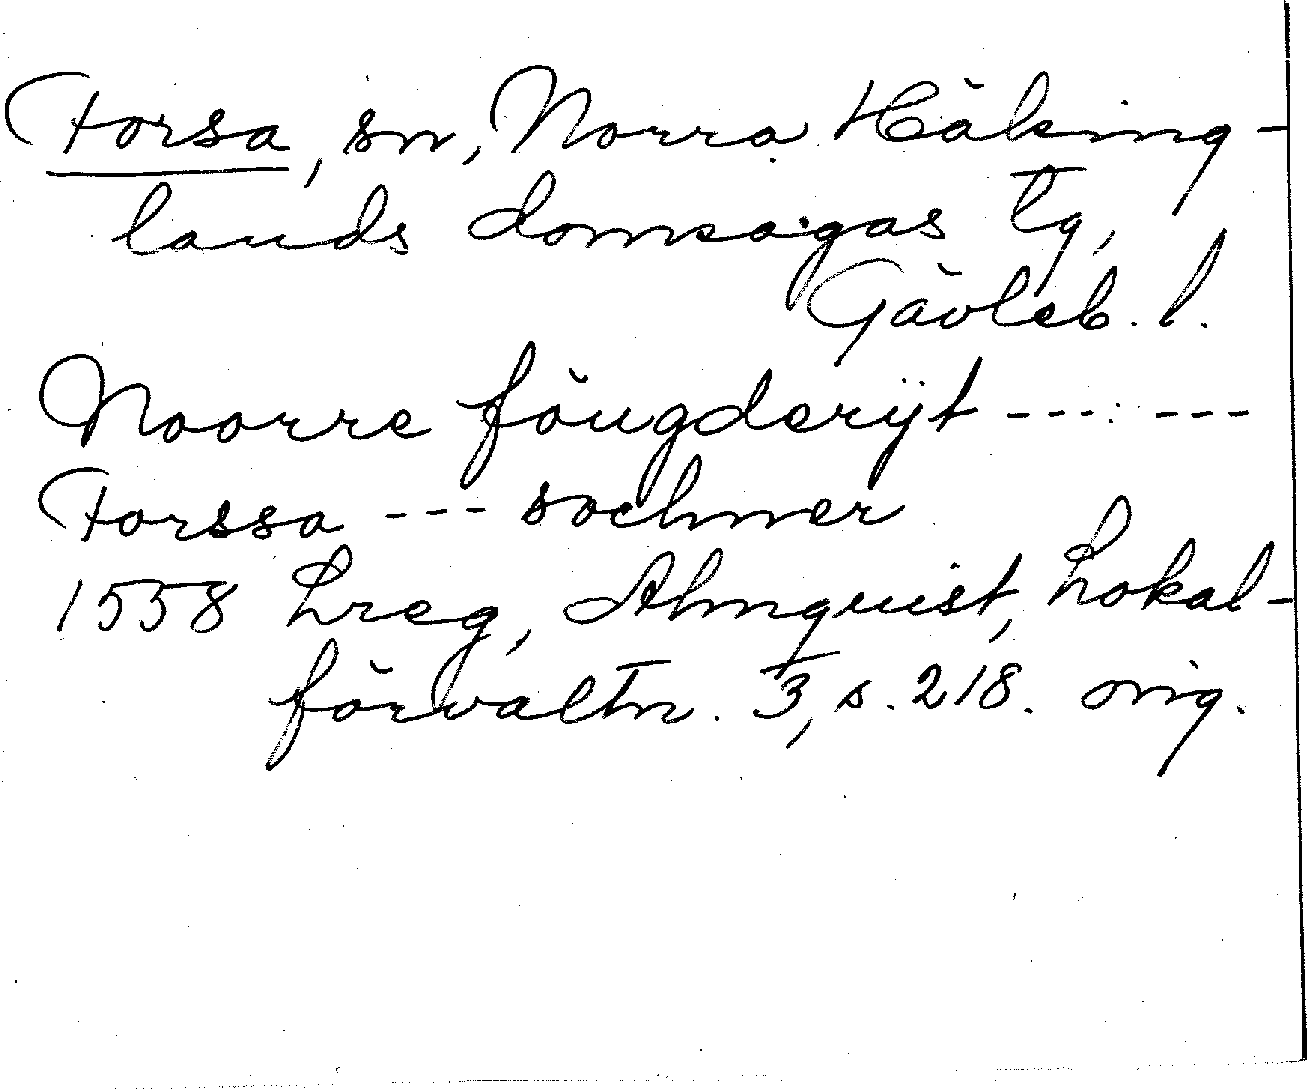 Forsa, sn, Norra Hälsing-
lands domsagas tg,
Gävleb. l.
Noorre föugderÿt --- ---
Forssa --- sochner
1558 Lreg, Almquist, Lokal-
förvaltn. 3, s. 218. orig.